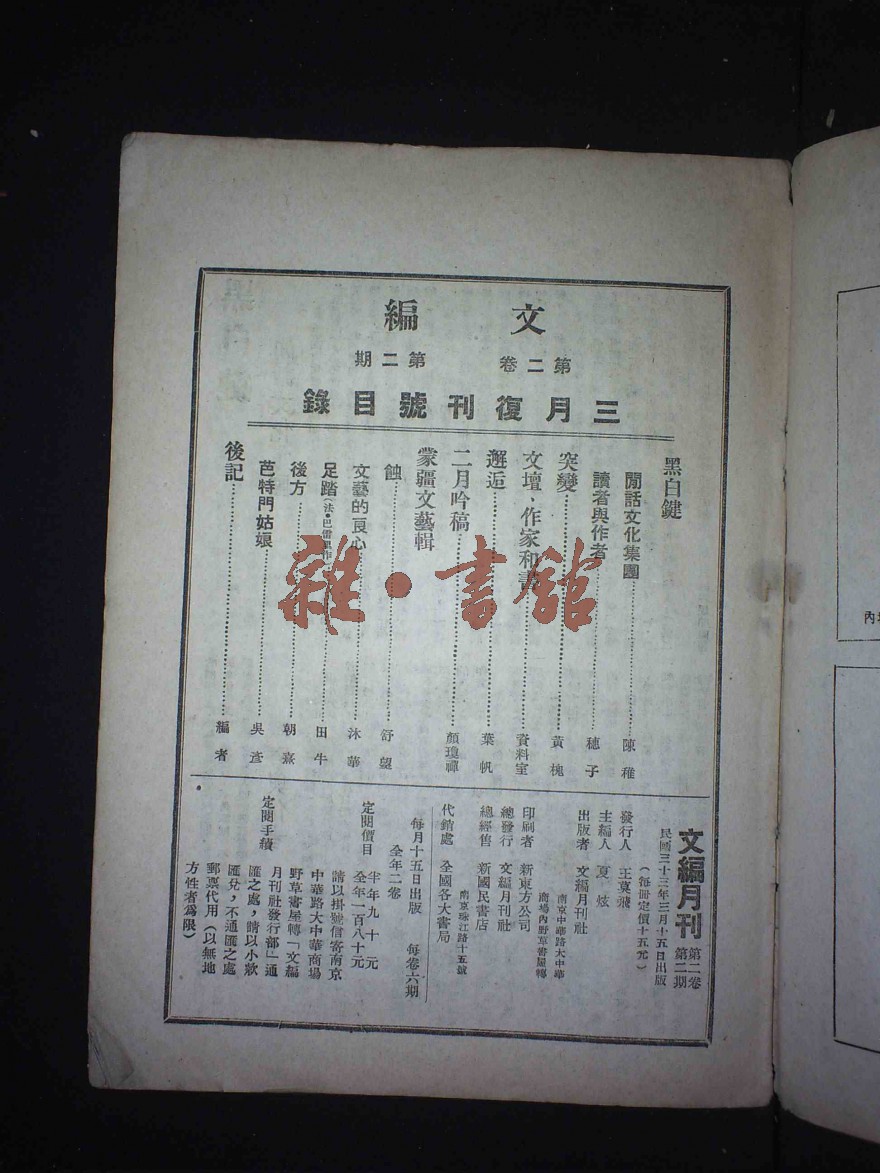 文編
第二卷 第二期
三月復刊號目錄
黑白鍵
閒話文化集團……陳稚
讀者與作者……穗子
突變……黃槐
文壇・作家和書……資料室
邂逅……葉帆
二月吟稿……顏瓊禪
蒙疆文藝輯
蝕……舒望
文藝的良心……沐華
足踏(法・巴雷里作)……田牛
後方……朝熹
芭特門姑娘……吳彥
後記……編者
文編月刊 第二卷 第二期
民國三十三年三月十五日出版
(每冊定價十五元)
發行人 王莫飛
主編人 夏炫
出版者 文編月刊社
南京中華路大中華
商場內野草書屋轉
印刷者 新東方公司
總發行 文編月刊社
總經售 新國民書店
南京珠江路十五號
代銷處 全國各大書局
每月十五日出版 每卷六期
全年二卷
定閱價目 半年九十元
全年一百八十元
定閱手續 請以掛號信寄南京
中華路大中華商場
野草書屋轉「文編
月刊社發行部」通
匯之處,請以小欵
匯兌,不通匯之處
郵票代用(以無地
方性者爲限)
雜・書館